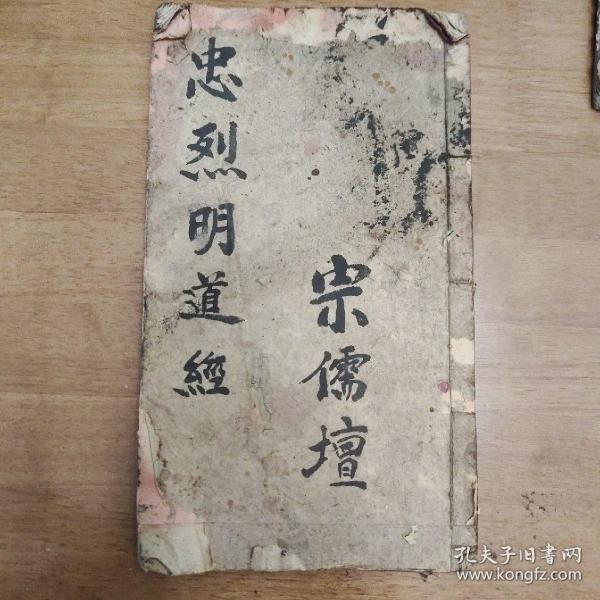 忠烈明道經
宗儒壇
孔夫子旧书网
www.kongfz.com